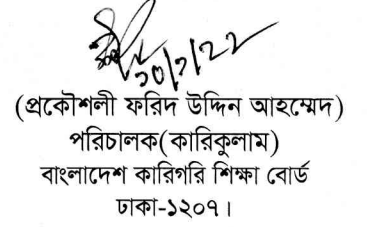 ২০/২/২২
(প্রকৌশলী ফরিদ উদ্দিন আহম্মেদ)
পরিচালক(কারিকুলাম)
বাংলাদেশ কারিগরি শিক্ষা বোর্ড
ঢাকা-১২০৭।